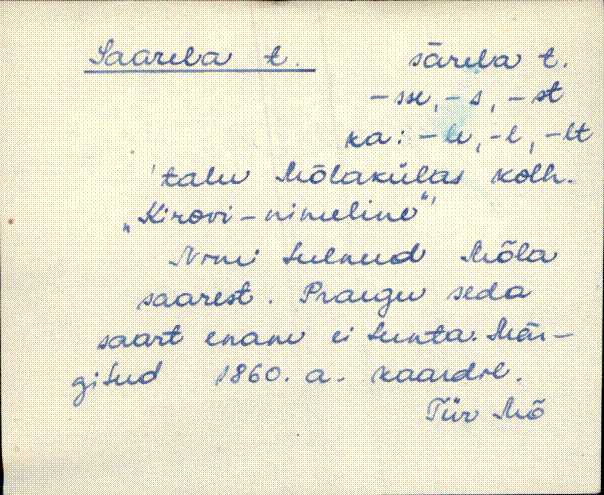 Saarela t. särela t.
-sse, -s, -st
ka: -le, -l, -lt
'talu Mõlakülas kolh.
„Kirovi-nimeline"'
Nimi tulnud Mõla
saarest. Praegu seda
saart enam ei tunta. Mär-
gitud 1860. a. kaardil.
Tür Mõ